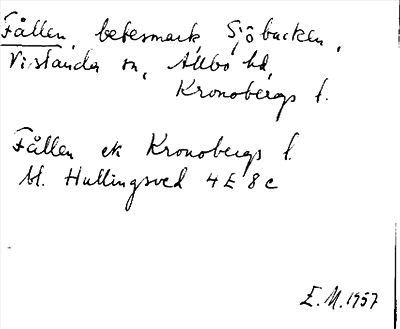 Fållen, betesmark, Sjöbacken,
Vislanda sn, Allbo hd,
Kronobergs l.
Fållen ek Kronobergs l.
bl. Hullingsved 4E 8c
E.M. 1957